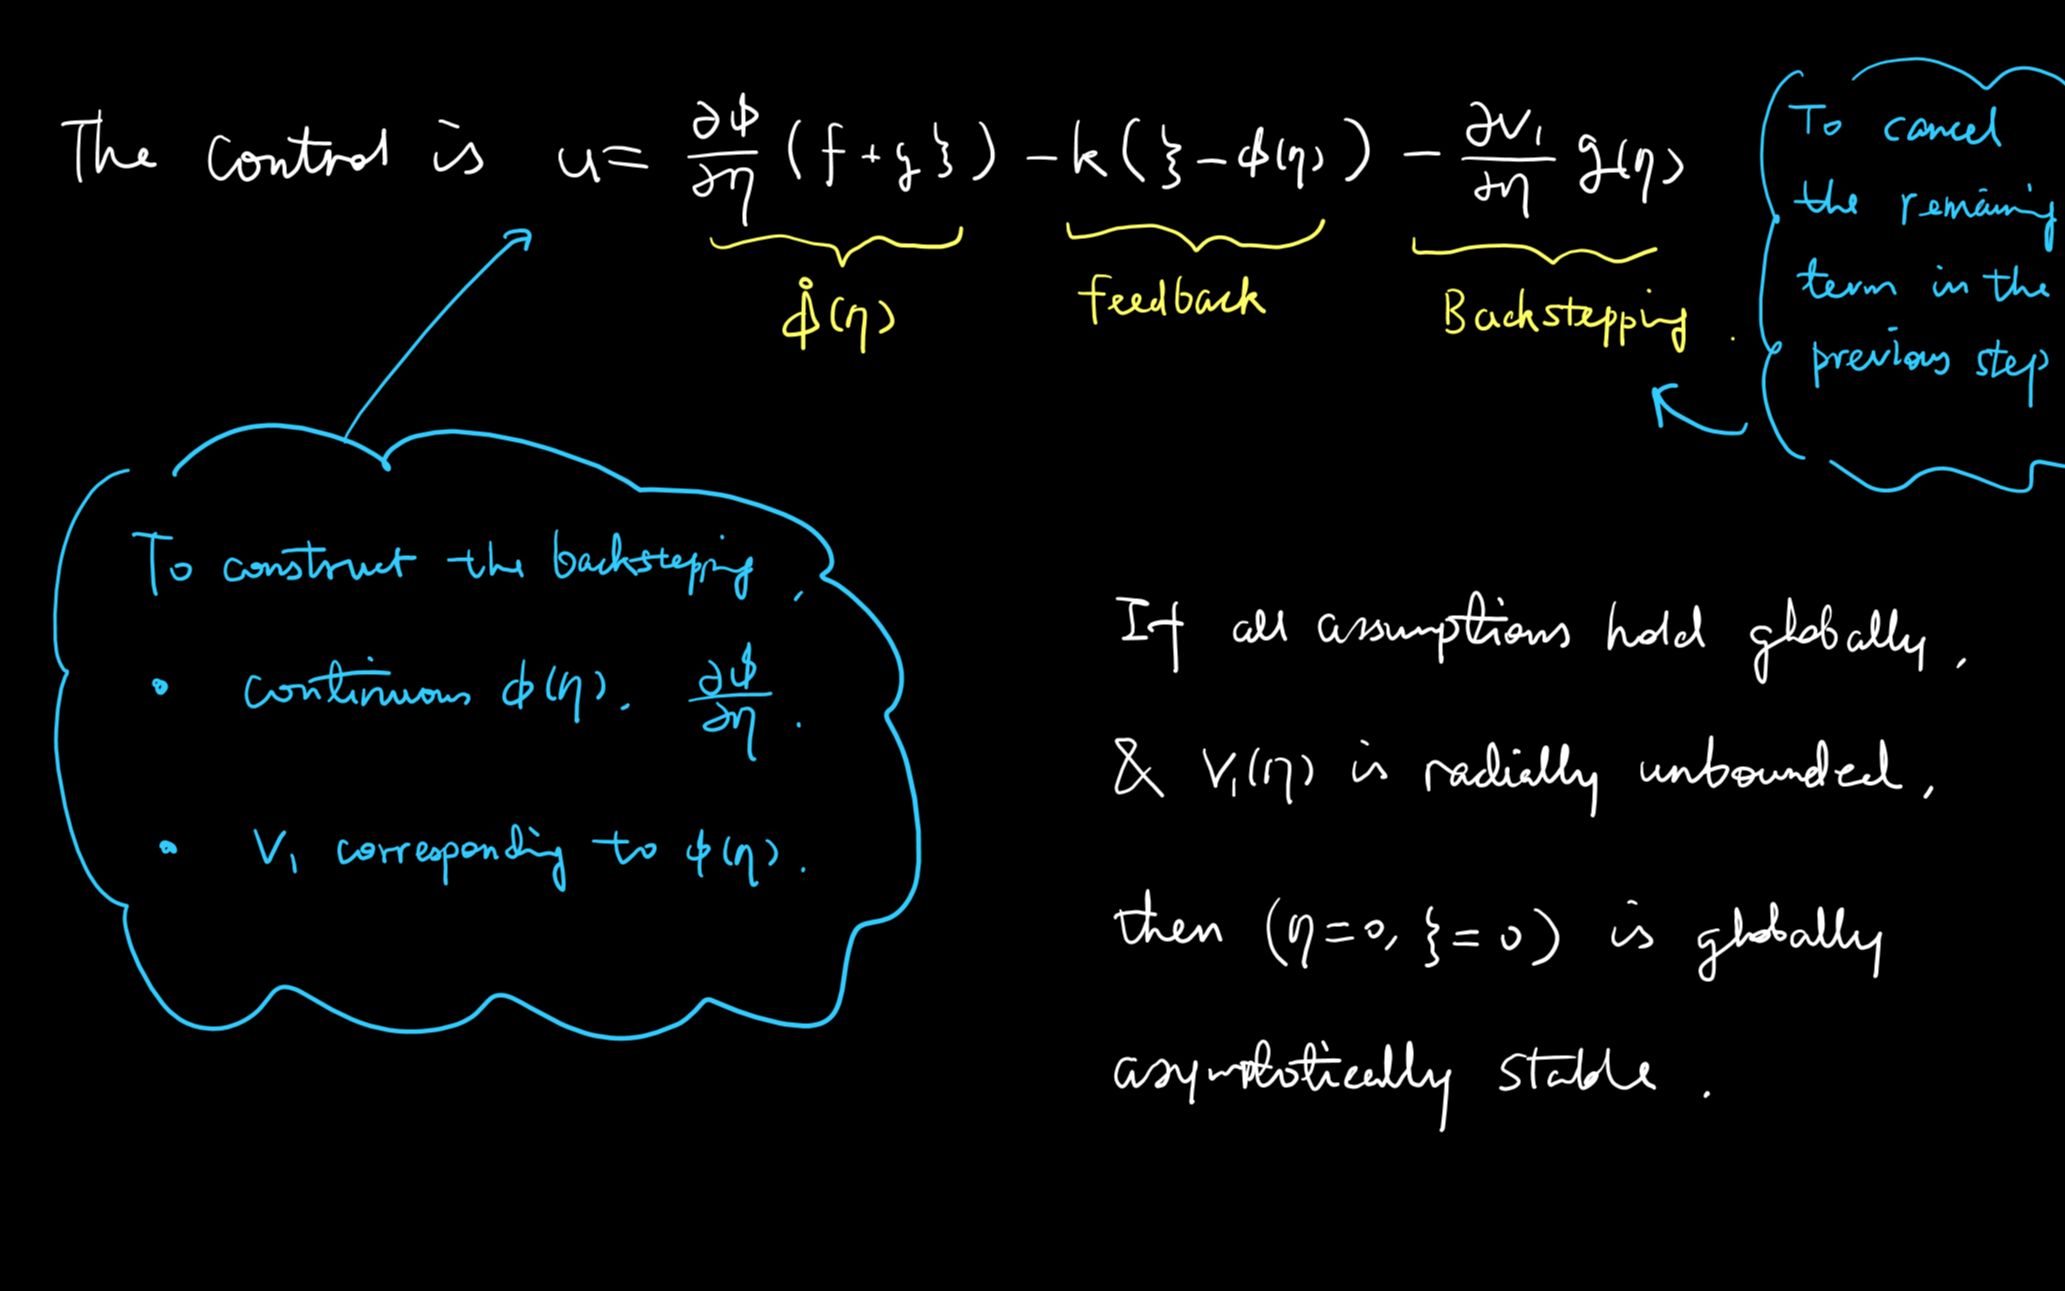 The control is u = ∂ϕ/∂η (f + g ξ) - k(ξ - ϕ(η)) - ∂V₁/∂η g(η)
ϕ̇(η)
feedback
Backstepping.
To cancel
the remaining
term in the
previous step
To construct the backstepping,
• continuous ϕ(η), ∂ϕ/∂η.
• V₁ corresponding to ϕ(η).
If all assumptions hold globally,
& V₁(η) is radially unbounded,
then (η=0, ξ=0) is globally
asymptotically stable.